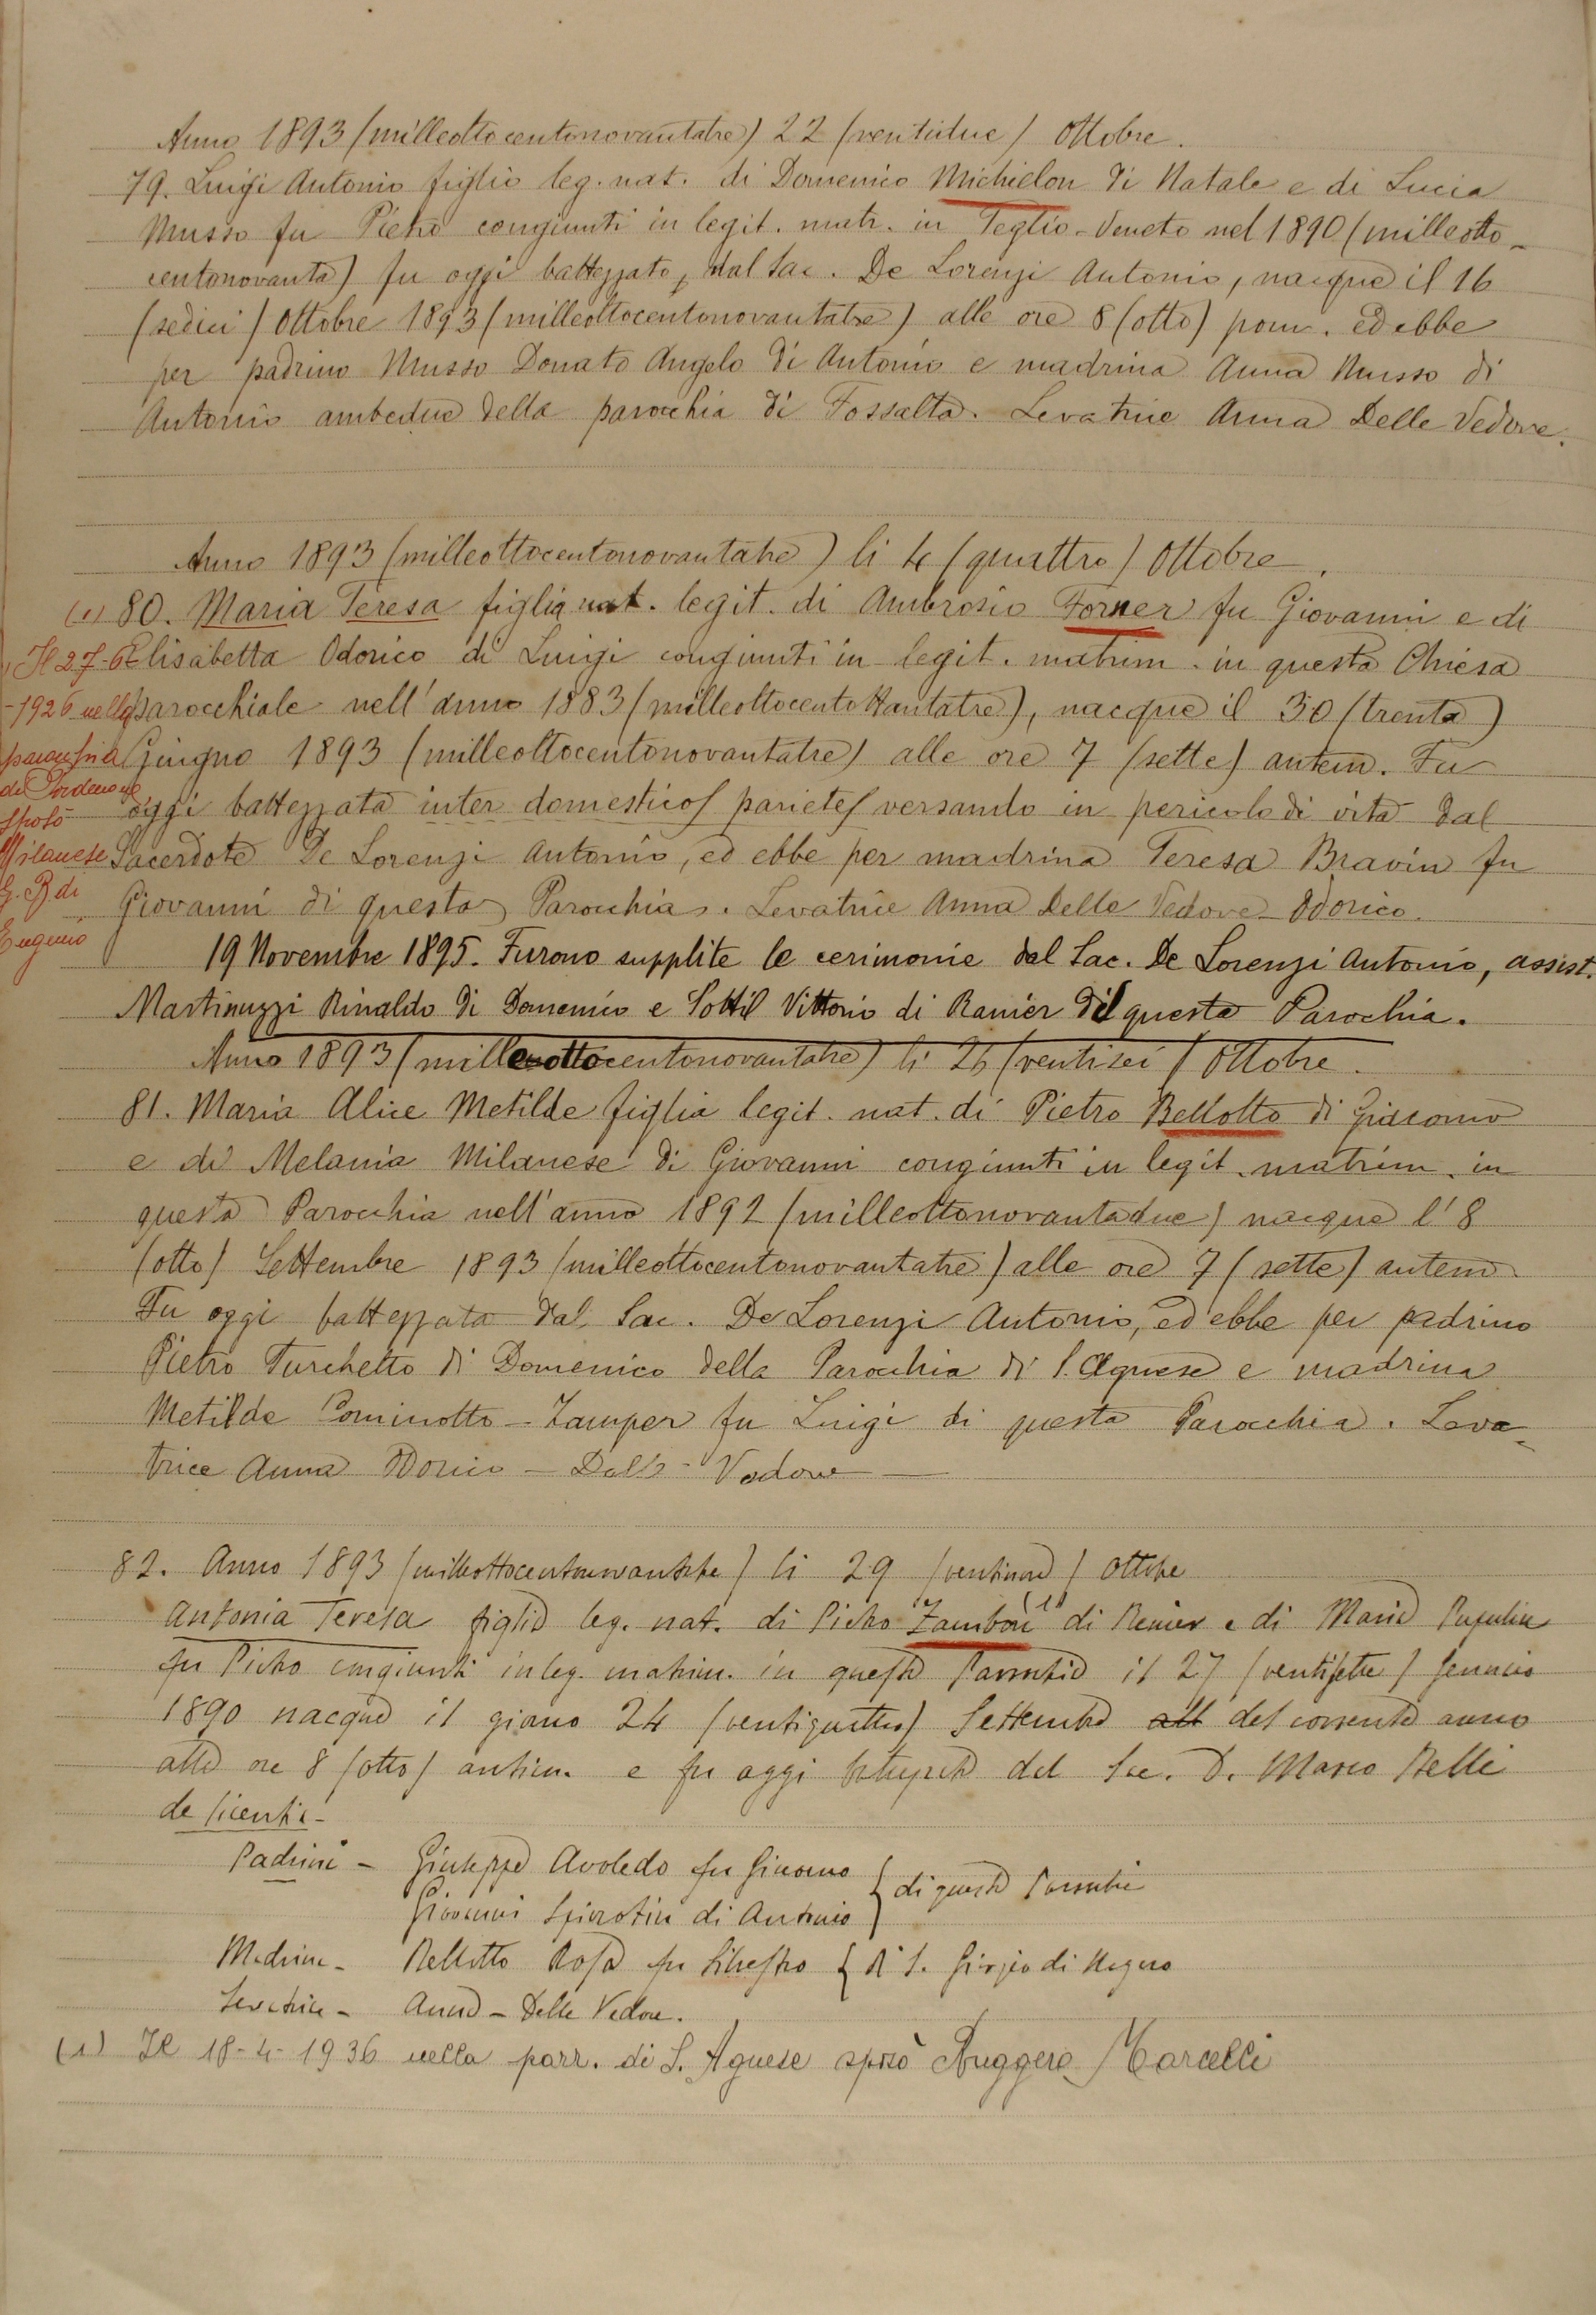 Anno 1893 (milleottocentonovantatre) 22 (ventidue) Ottobre.
79. Luigi Antonio figlio leg. nat. di Domenico Michielon di Natale e di Lucia
Musso fu Pietro congiunti in legit. matr. in Teglio-Veneto nel 1890 (milleotto-
centonovanta) fu oggi battezzato, dal Sac. De Lorenzi Antonio, nacque il 16
(sedici) Ottobre 1893 (milleottocentonovantatre) alle ore 8 (otto) pom. ed ebbe
per padrino Musso Donato Angelo di Antonio e madrina Anna Musso di
Antonio ambedue della parochia di Fossalta. Levatrice Anna Delle Vedove.
Anno 1893 (milleottocentonovantatre) li 4 (quattro) Ottobre.
(1) 80. Maria Teresa figlia nat. legit. di Ambrosio Forner fu Giovanni e di
Elisabetta Odorico di Luigi congiunti in legit. matrim. in questa Chiesa
parocchiale nell'anno 1883 (milleottocentottantatre), nacque il 30 (trenta)
Giugno 1893 (milleottocentonovantatre) alle ore 7 (sette) antem. Fu
oggi battezzata inter domesticos parietes versando in pericolo di vita dal
Sacerdote De Lorenzi Antonio, ed ebbe per madrina Teresa Bravin fu
Giovanni di questa Parochia. Levatrice Anna Delle Vedove-Odorico.
Il 27-6
-1926 nella
parocchia
di Pordenone
sposò
Milanese
G. B. di
Eugenio
19 Novembre 1895. Furono supplite le cerimonie dal Sac. De Lorenzi Antonio, assist.
Martinuzzi Rinaldo di Domenico e Sottil Vittorio di Ranier di questa Parochia.
Anno 1893 (milleottocentonovantatre) li 26 (ventisei) Ottobre.
81. Maria Alice Metilde figlia legit. nat. di Pietro Bellotto di Giacomo
e di Melania Milanese di Giovanni congiunti in legit. matrim. in
questa Parochia nell'anno 1892 (milleottonovantadue) nacque l'8
(otto) Settembre 1893 (milleottocentonovantatre) alle ore 7 (sette) antem.
Fu oggi battezzata dal Sac. De Lorenzi Antonio, ed ebbe per padrino
Pietro Turchetto di Domenico della Parochia di S. Agnese e madrina
Metilde Cominotto-Zamper fu Luigi di questa Parochia. Leva-
trice Anna Odorico - Delle - Vedove
82. Anno 1893 (milleottocentonovantatre) li 29 (ventinove) Ottobre
Antonia Teresa figlia leg. nat. di Pietro Zambon (1) di Renier e di Maria
fu Pietro congiunti in leg. matrim. in questa Parochia il 27 (ventisette) Gennaio
1890 nacque il giorno 24 (ventiquattro) Settembre all del corrente anno
alle ore 8 (otto) antim. e fu oggi battezzata dal Sac. D. Marco Belli
de licentia-
Padrini - Giuseppe Avoledo fu Giacomo
Giovanni di Antonio } di questa Parochia
Madrina - Bellotto Rosa fu Silvestro { di S. Giorgio di Nogaro
Levatrice - Anna - Delle Vedove.
(1) Il 18-4-1936 nella parr. di S. Agnese sposò Ruggero Marcelli